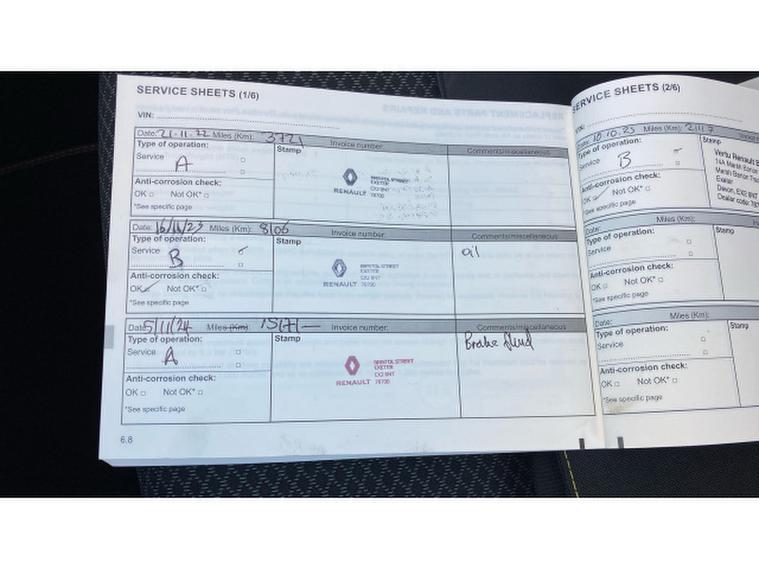 SERVICE SHEETS (1/6)
VIN:
Date: 21-11-22 Miles (Km): 3721 Invoice number: Comments/miscellaneous
Type of operation: Stamp
Service A
Anti-corrosion check:
OK Not OK*
*See specific page
RENAULT
BRISTOL STREET
EXETER
76700
Date: 16/11/23 Miles (Km): 8106 Invoice number: Comments/miscellaneous
Type of operation: Stamp
Service B
oil
Anti-corrosion check:
OK Not OK*
*See specific page
RENAULT
BRISTOL STREET
EXETER
76700
Date: 5/11/24 Miles (Km): 15171 Invoice number: Comments/miscellaneous
Type of operation: Stamp
Service A
Brake fluid
Anti-corrosion check:
OK Not OK*
*See specific page
RENAULT
BRISTOL STREET
EXETER
76700
6.8
SERVICE SHEETS (2/6)
VIN:
Miles (Km):
Type of operation: Stamp
Service B
Anti-corrosion check:
OK Not OK*
*See specific page
Vertu Renault
Exeter
Devon, EX2
Dealer code:
Date: Miles (Km):
Type of operation: Stamp
Service
Anti-corrosion check:
OK Not OK*
*See specific page
Date: Miles (Km):
Type of operation: Stamp
Service
Anti-corrosion check:
OK Not OK*
*See specific page